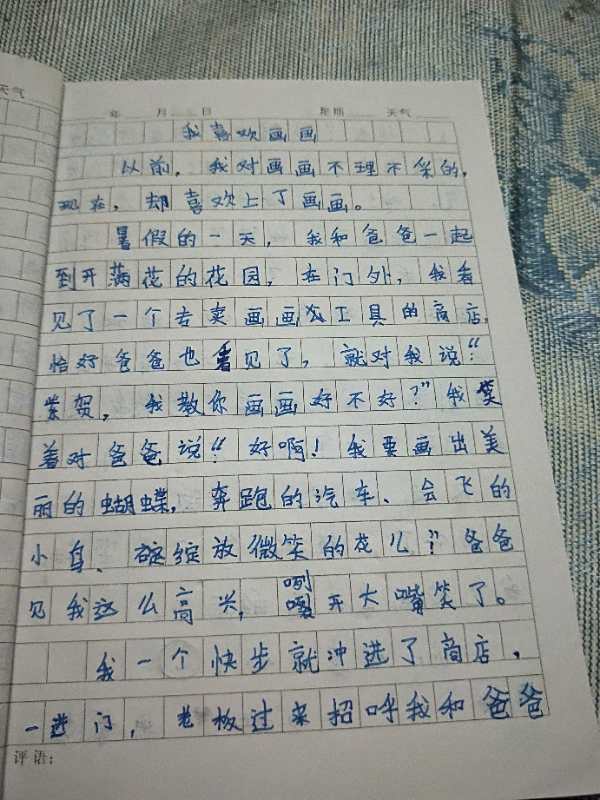 天气
年 月 日 星期 天气
我喜欢画画
以前，我对画画不理不采的，
现在，却喜欢上了画画。
暑假的一天，我和爸爸一起
到开满花的花园，在门外，我看
见了一个专卖画画工具的商店，
恰好爸爸也看见了，就对我说：“
紫贺，我教你画画好不好？”我笑
着对爸爸说“好啊！我要画出美
丽的蝴蝶，奔跑的汽车、会飞的
小鸟、绽放微笑的花儿”爸爸
见我这么高兴，咧开大嘴笑了。
我一个快步就冲进了商店，
一进门，老板过来招呼我和爸爸
评语：